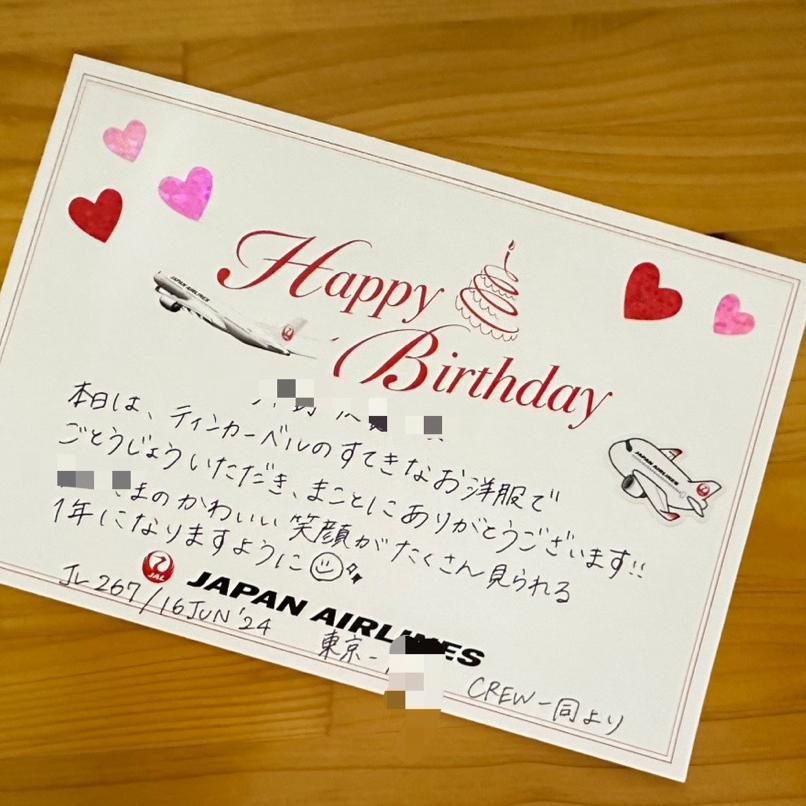 Happy
Birthday
JAPAN AIRLINES
本日は、ティンカーベルのすてきなお洋服で
ごとうじょういただき、まことにありがとうございます!!
まのかわいい笑顔がたくさん見られる
1年になりますように
JAL
JAPAN AIRLINES
JL267/16JUN'24
東京-
CREW一同より
JAPAN AIRLINES